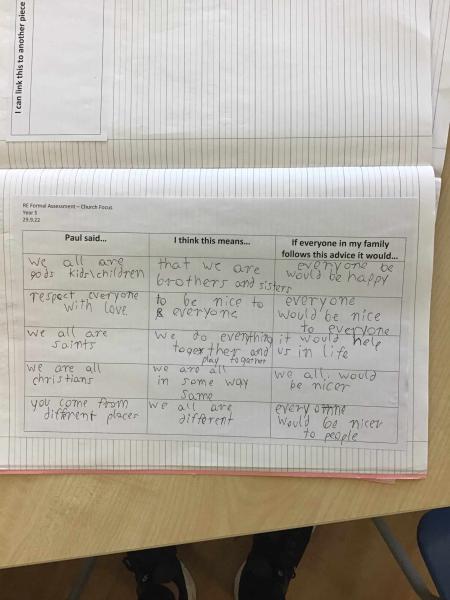 I can link this to another piece
RE Formal Assessment – Church Focus
Year 5
29.9.22
Paul said...
I think this means...
If everyone in my family
follows this advice it would...
we all are
gods kids\children
that we are
brothers and sisters
everyone be
would be happy
respect everyone
with love
to be nice to
everyone
everyone
would be nice
to everyone
we all are
saints
we do everything
together and
play together
it would help
us in life
we are all
christians
we are all
in some way
same
we all would
be nicer
you come from
different places
we all are
different
every
would be nicer
to people